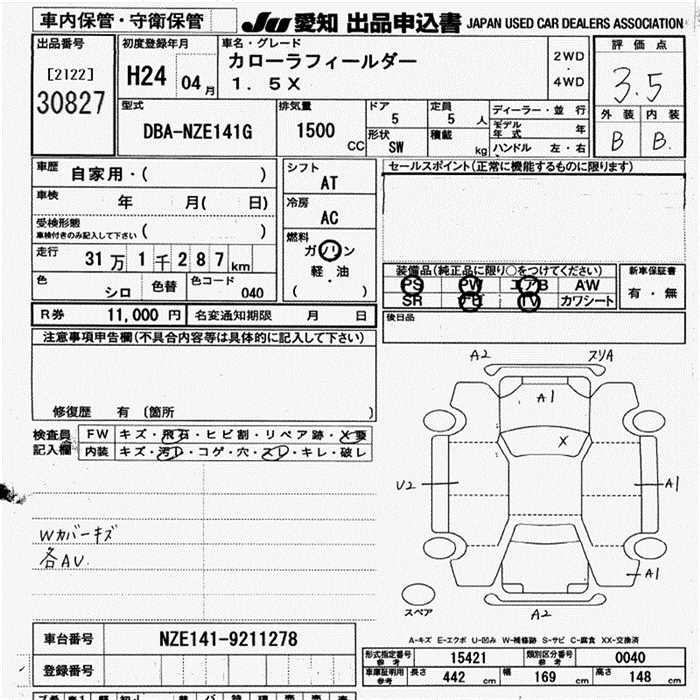 車内保管・守衛保管 JU 愛知 出品申込書 JAPAN USED CAR DEALERS ASSOCIATION
出品番号 初度登録年月 車名・グレード 評価点
[2122] H24 04月 カローラフィールダー 2WD
30827 1. 5X ・ 4WD 3.5
型式 排気量 ドア 定員 ディーラー・並行 外装 内装
DBA-NZE141G 1500 CC 5 5 人 モデル年式 年 B B.
形状 SW 積載 kg ハンドル 左・右
車歴 自家用・( ) シフト AT セールスポイント(正常に機能するものに限ります)
車検 年 月( 日) 冷房 AC
受検形態
車検付きのみ記入して下さい ( ) 燃料
走行 31万1千287km ガソリン
軽・油
( )
色 シロ 色替 色コード 040
装備品(純正品に限り○をつけてください) 新車保証書
PS PW エアB AW 有・無
SR ナビ TV カワシート
R券 11,000 円 名変通知期限 月 日 後日品
注意事項申告欄(不具合内容等は具体的に記入して下さい)
修復歴 有 (箇所 )
検査員 FW キズ・飛石・ヒビ割・リペア跡・X要
記入欄 内装 キズ・汚レ・コゲ・穴・スレ・キレ・破レ
Wカバーキズ
各AU.
A2 スリA
A1
X
U2 A1
A1
スペア A2
A-キズ E-エクボ U-凹み W-補修跡 S-サビ C-腐食 XX-交換済
車台番号 NZE141-9211278
登録番号
形式指定番号 参考 15421 類別区分番号 参考 0040
車庫証明用 参考 長さ 442 cm 幅 169 cm 高さ 148 cm